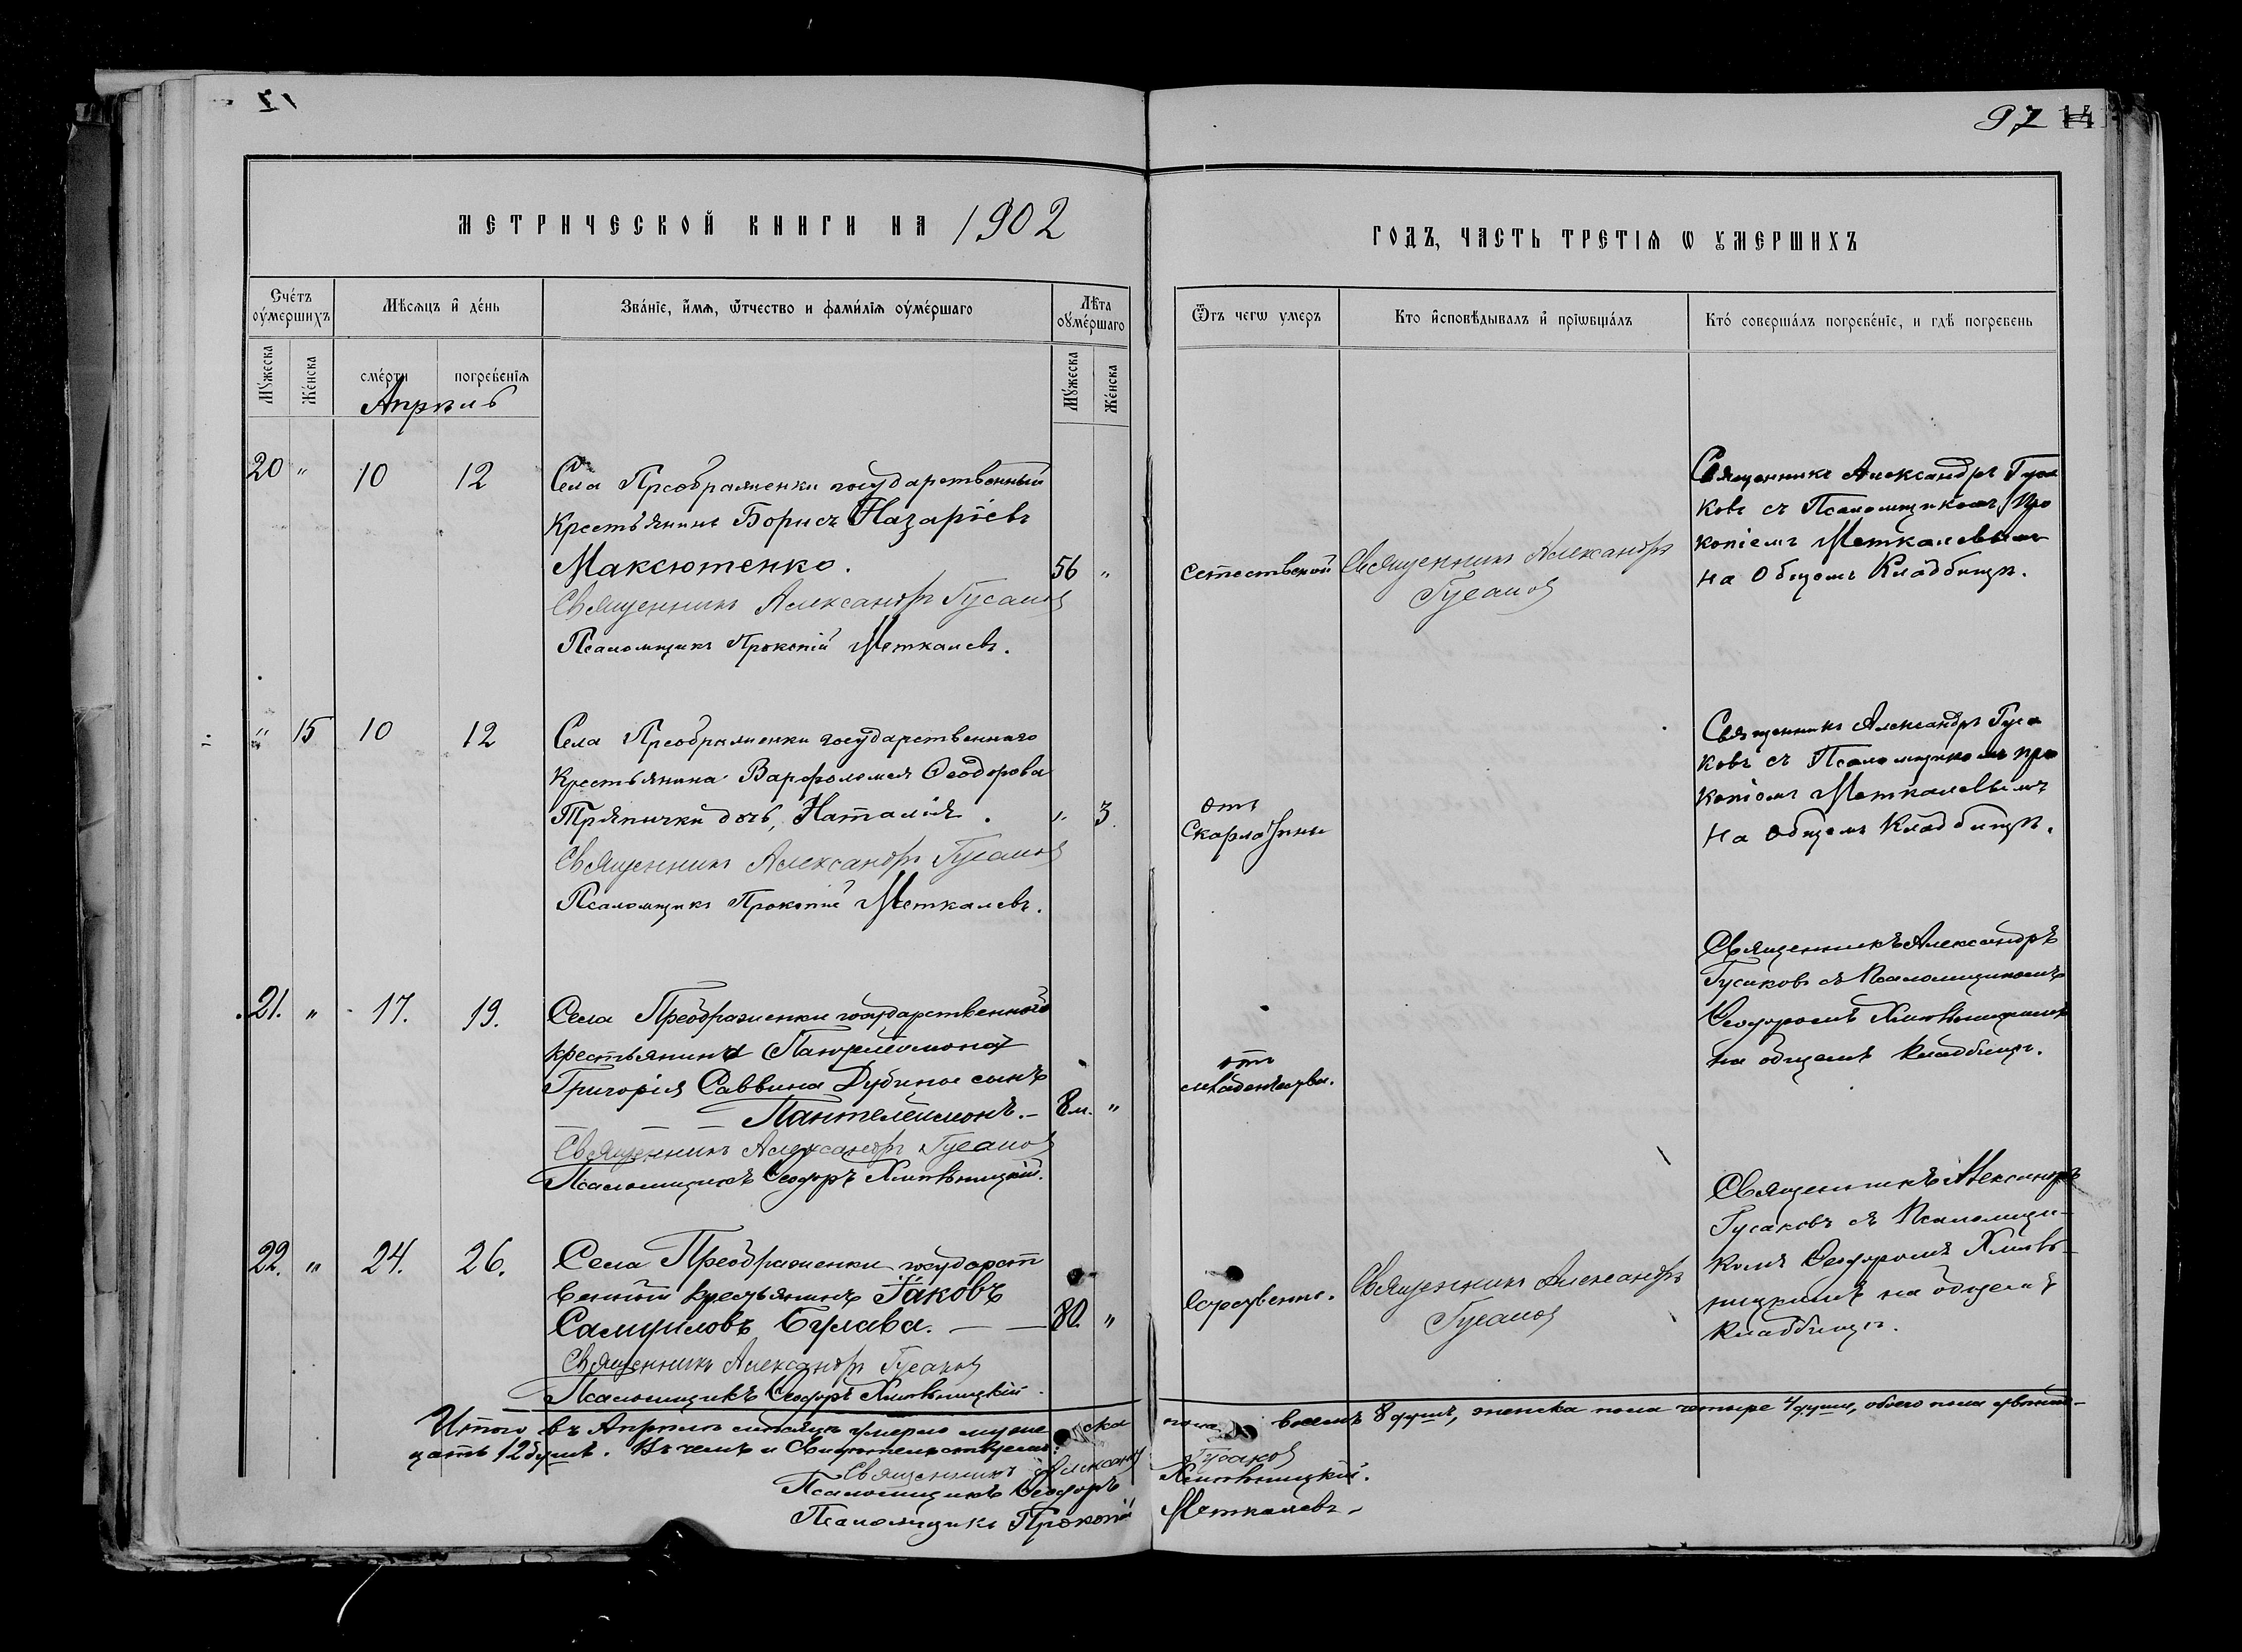 97 14
МЕТРИЧЕСКОЙ КНИГИ НА 1902
ГОДЪ, ЧАСТЬ ТРЕТІѦ Ѡ ꙊМЕРШИХЪ
Сче́тъ оу҆ме́ршихъ
Мѣсѧцъ и҆ де́нь
Зва́нїе, и҆́мѧ, ѻ҆́тчество и фамі́лїѧ оу҆ме́ршагѡ
Лѣта оу҆ме́ршагѡ
Ѿ чегѡ умеръ
Кто и҆сповѣ́дывалъ и҆ прїѡбща́лъ
Кто́ соверша́лъ погребе́нїе, и гдѣ погребенъ
Мꙋ́жеска
Же́нска
сме́рти
погребе́нїѧ
Мꙋ́жеска
Же́нска
Апрѣль
20 " 10 12
Села Преображенки государственный
Крестьянинъ Борисъ Назаріевъ
Максютенко.
56 "
Священникъ Александръ Гусаковъ
Псаломщикъ Прокопій Меткалевъ.
естественой
Священникъ Александръ
Гусаковъ
Священникъ Александръ Гуса
ковъ съ Псаломщикомъ Про
копіемъ Меткалевымъ
на Общемъ Кладбищѣ.
" 15 10 12
Села Преображенки государственнаго
Крестьянина Варфоломея Ѳеодорова
Тряпички дочь, Наталія.
" 3.
Священникъ Александръ Гусаковъ
Псаломщикъ Прокопій Меткалевъ.
отъ
Скарлатины
Священникъ Александръ Гуса
ковъ съ Псаломщикомъ Про
копіемъ Меткалевымъ
На Общемъ Кладбищѣ.
21. " 17. 19.
Села Преображенки государственного
крестьянина
Григорія Саввина Дубины сынъ
Пантелеимонъ.
8 м. "
Священникъ Александръ Гусаковъ
Псаломщикъ Ѳеодоръ
отъ
Священникъ Александръ
Гусаковъ съ Псаломщикомъ
Ѳеодоромъ
на общемъ кладбищѣ.
22. " 24. 26.
Села Преображенки государст
венный крестьянинъ Іаковъ
Самуиловъ Булава.
80. "
Священникъ Александръ Гусаковъ
Псаломщикъ Ѳеодоръ
Естественно.
Священникъ Александръ
Гусаковъ
Священникъ Александръ
Гусаковъ съ Псаломщи-
комъ Ѳеодоромъ
на общемъ
кладбищѣ.
Итого въ Апрѣлѣ мѣсяцѣ умерло мужеска пола восемь 8 душъ, женска пола четыре 4 души, обоего пола двенад-
цать 12 душъ. Въ чемъ и свидѣтельствуемъ:
Священникъ Александръ Гусаковъ
Псаломщикъ Ѳеодоръ
Псаломщикъ Прокопій Меткалевъ